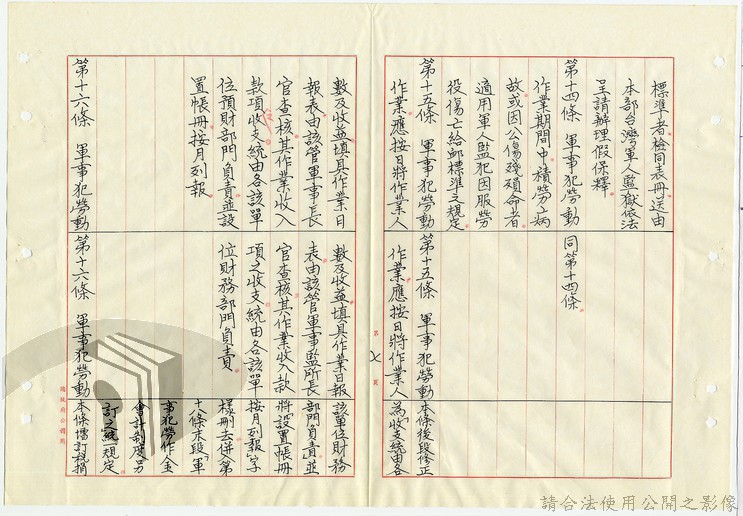 標準者檢同表冊送由
本部台灣軍人監獄依法
呈請辦理假保釋
第十四條 軍事犯勞動
作業期間中積勞病
故或因公傷殘殞命者
適用軍人監犯因服勞
役傷亡給卹標準之規定
第十五條 軍事犯勞動
作業應按日將作業人
同第十四條
第十五條 軍事犯勞動
作業應按日將作業人
本條後段修正
為「收支統由各
第 頁
數及收益填具作業日
報表由該管軍事長
官查核其作業收入
款項收支統由各該單
位預財部門負責並設
置帳冊按月列報
第十六條 軍事犯勞動
數及收益填具作業日報
表由該管軍事監所長
官查核其作業收入款
項之收支統由各該單
位財務部門負責
第十六條 軍事犯勞動
該單位財務
部門負責並
將設置帳冊
按月列報」字
樣刪去併入第
十八條末段「軍
事犯勞作金
會計制度另
訂之」規定
本條增訂
請合法使用公開之影像